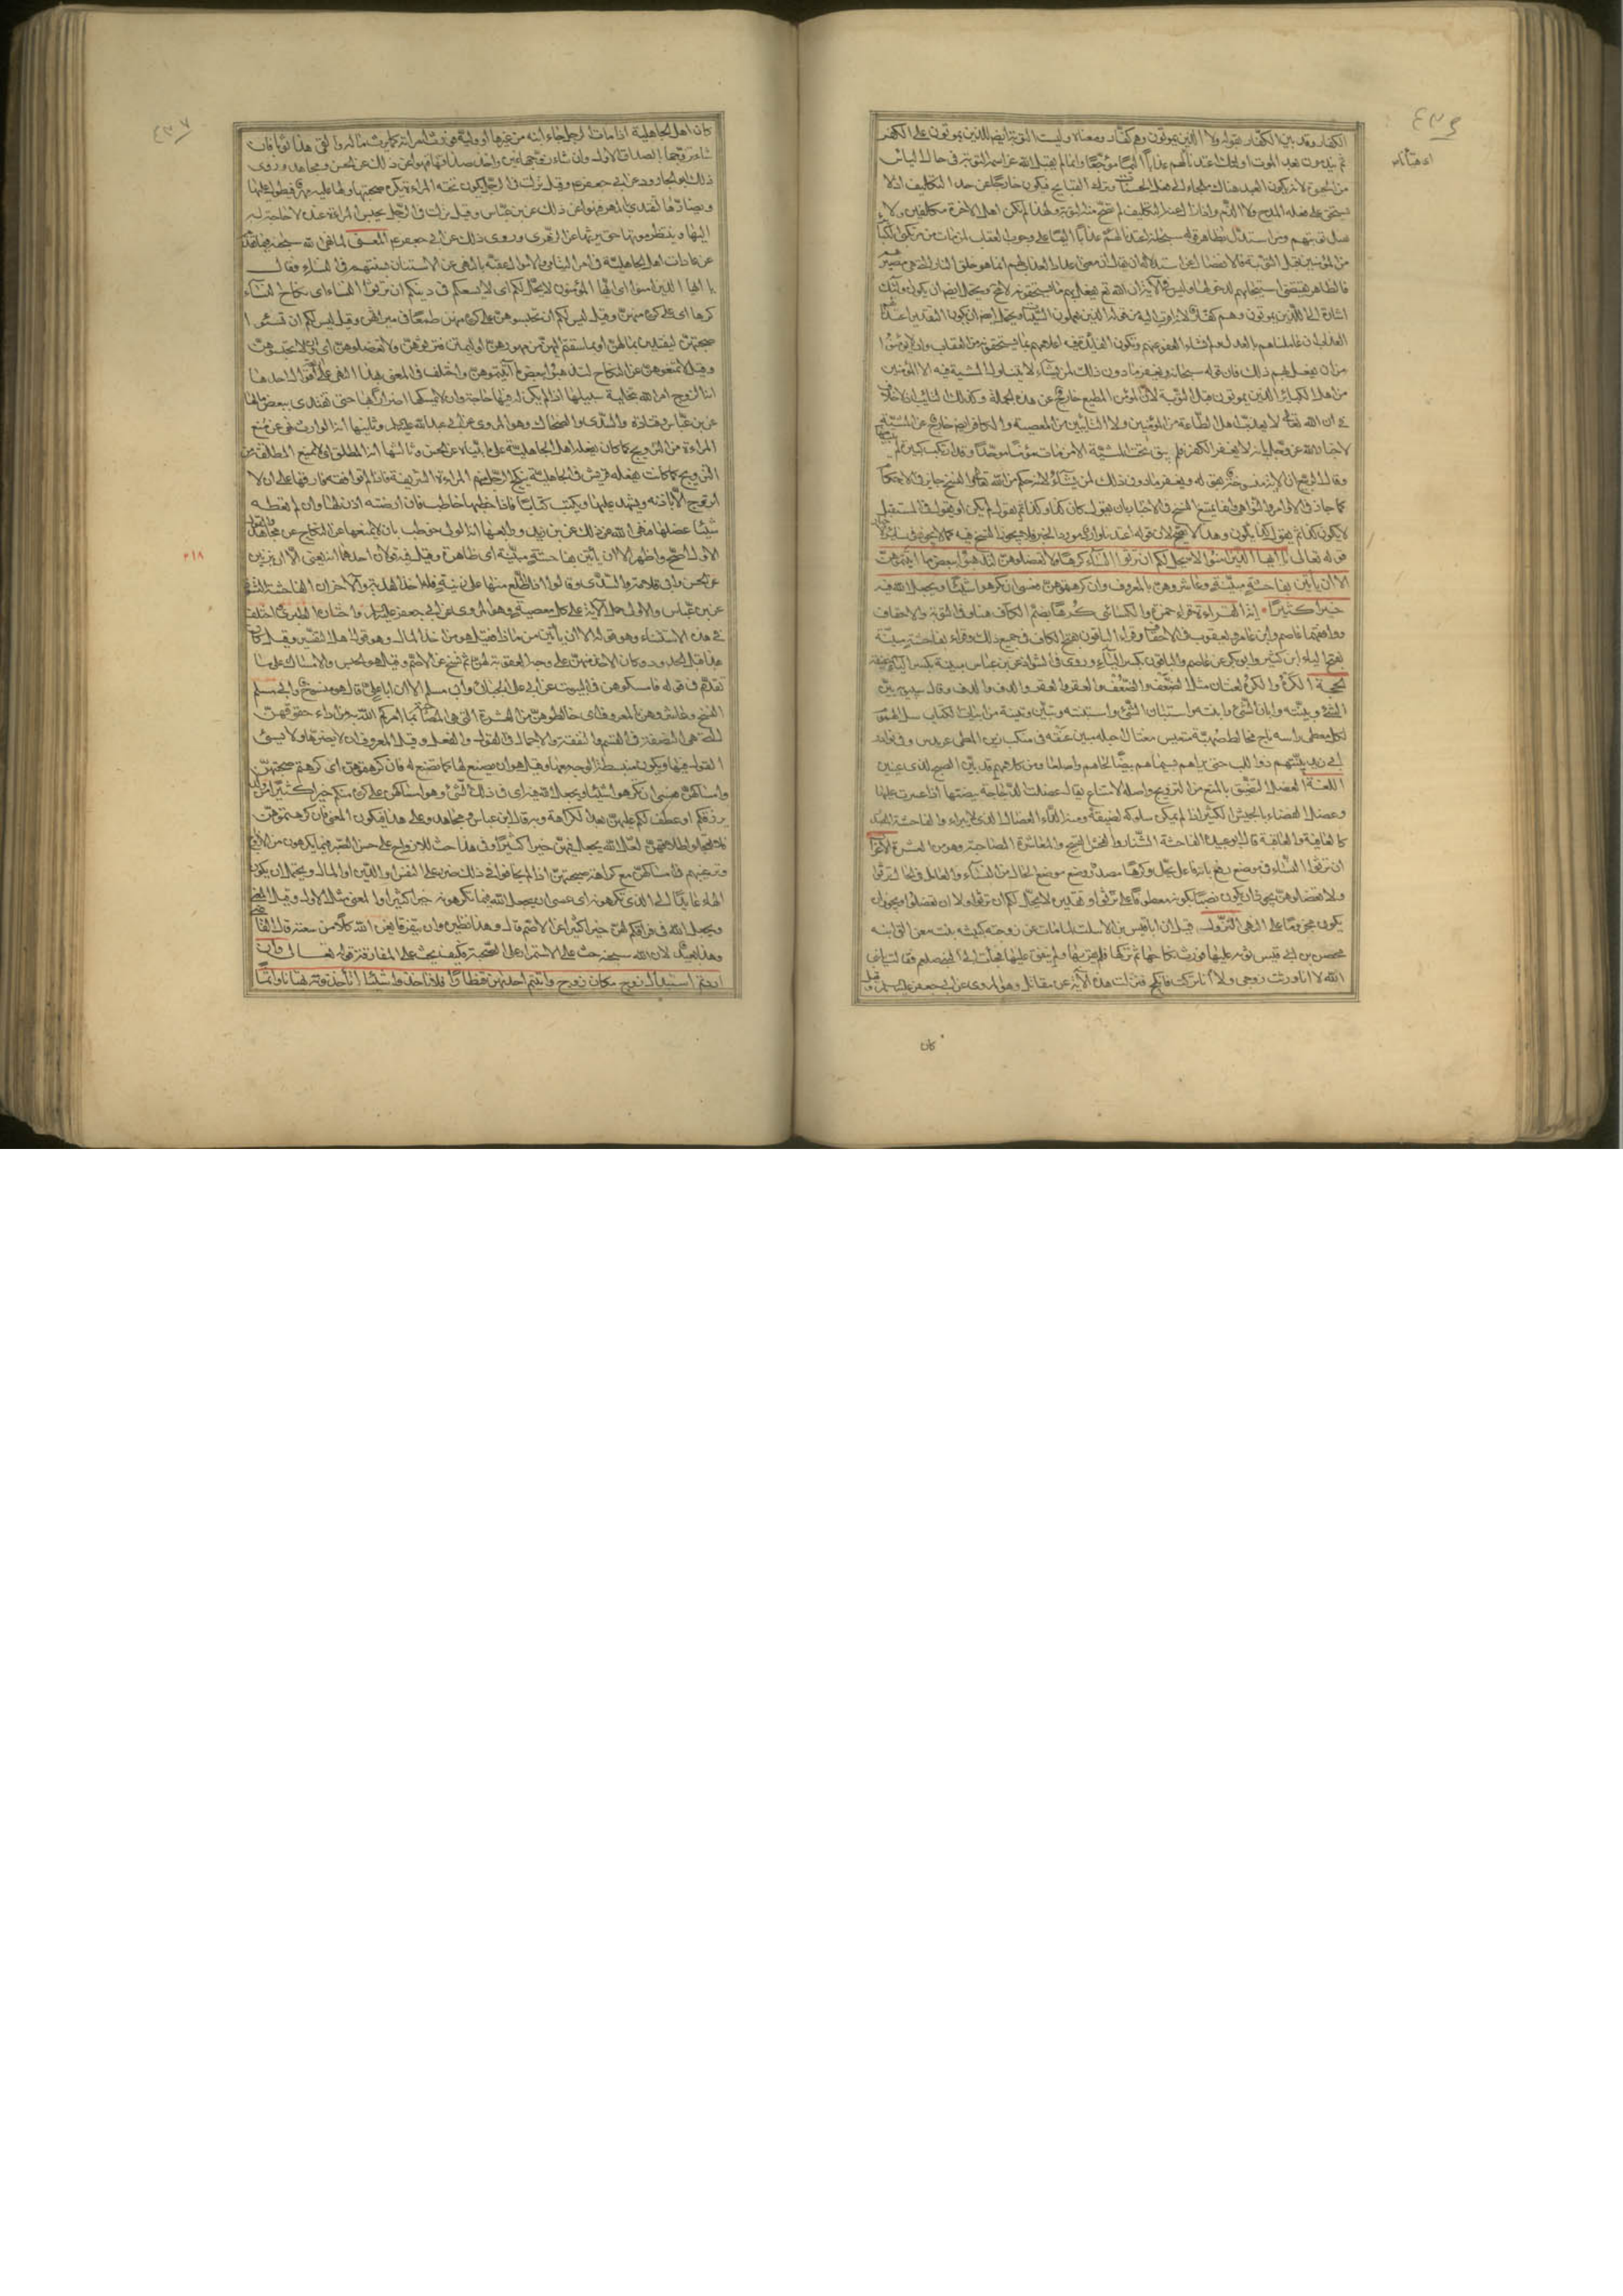 الكفار وقد بين الكفار بقوله ولا الذين يموتون وهم كفار ومعناه وليست التوبة ايضا للذين يموتون على الكفر
ثم يندمون بعد الموت اولئك اعتدنا لهم عذابا اليما موجعا وانما لم يقبل الله عز اسمه التوبة في حال الياس
من الحيوة لانه يكون العبد هناك ملجاء الى فعل الحسنات وترك القبايح فيكون خارجا عن حد التكليف اذ لا
يستحق على فعله المدح ولا الذم واذا زال عنه التكليف لم تصح منه التوبة ولهذا لم يكن اهل الاخرة مكلفين ولا
تقبل توبتهم ومن استدل بظاهر قوله سبحانه اعتدنا لهم عذابا اليما على وجوب العقاب لمن مات من مرتكبي الكبائر
من المؤمنين قبل التوبة فالانفصال عن استدلاله ان يقال ان معنى اعداد العذاب لهم انما هو خلق النار التي هي مصيرهم
فالظاهر يقتضي استيجابهم لدخولها وليس في الاية ان الله تعالى يفعل بهم ما يستحقونه لا محالة ويحتمل ايضا ان يكون اولئك
اشارة الى الذين يموتون وهم كفار لانه اقرب اليه من قوله الذين يعملون السيئات ويحتمل ايضا ان يكون التقدير اعتدنا
العذاب ان عاملناهم بالعدل ولم نشاء العفو عنهم وتكون الفائدة فيه اعلامهم بما يستحقونه من العقاب وان لا يؤمنوا
من ان يفعل بهم ذلك فان قوله سبحانه ويغفر ما دون ذلك لمن يشاء لا يتناول المشية فيه الا المؤمنين
من اهل الكبائر الذين يموتون قبل التوبة لان المؤمن المطيع خارج عن هذه الجملة وكذلك التائب اذ لا خلاف
في ان الله تعالى لا يعذب اهل الطاعة من المؤمنين ولا التائبين من المعصية والكافر ايضا خارج عن المشية
لاخبار الله عز وجل انه لا يغفر الكفر فلم يبق تحت المشية الا من مات مؤمنا موحدا وقد ارتكب كبيرة لم يتب
وقال الربيع ان الاية منسوخة بقوله ويغفر ما دون ذلك لمن يشاء لانه حكم من الله تعالى والنسخ جائز في الاحكام
كما جاز في الاوامر والنواهي وانما يمتنع النسخ في الاخبار بان يقول كان كذا وكذا ثم يقول لم يكن او يقول في المستقبل
لا يكون كذا ثم يقول كذا يكون وهذا لا يصح لان قوله اعتدنا وارد مورد الخبر فلا يجوز النسخ فيه كما لا يجوز في سائر الاخبار
قوله تعالى يا ايها الذين امنوا لا يحل لكم ان ترثوا النساء كرها ولا تعضلوهن لتذهبوا ببعض ما اتيتموهن
الا ان ياتين بفاحشة مبينة وعاشروهن بالمعروف فان كرهتموهن فعسى ان تكرهوا شيئا ويجعل الله فيه
خيرا كثيرا اية القراءة قراء حمزة والكسائي كرها بضم الكاف هنا وفي التوبة والاحقاف
ووافقهما عاصم وابن عامر ويعقوب في الاحقاف وقراء الباقون بفتح الكاف في جميع ذلك وقراء بفاحشة مبينة
بفتح الياء ابن كثير وابو بكر عن عاصم والباقون بكسر الياء وروي في الشواذ عن ابن عباس مبينة بكسر الباء خفيفة
الحجة الكره والكره لغتان مثل الضعف والضعف والفقر والفقر والدف والدف وقال سيبويه بين
الشيء وبينته وابان الشيء وابنته واستبان الشيء واستبنته وتبين وتبينته ومن ابيات الكتاب سل الهموم
بكل معطي راسه ناج مخالط صهبة متعيس مغتال احبله مبين عنقه في منكب زين المطي عرندس وفي نوادر
ابي زيد يبينهم ذو اللب حتى يراهم بسيماهم بيضا لحاهم واصلعا ومن كلامهم قد بين الصبح لذي عينين
اللغة العضل التضييق بالمنع من التزويج واصله الامتناع يقال عضلت الدجاجة ببيضتها اذا عسرت عليها
وعضل الفضاء بالجيش الكثير اذا لم يمكن سلوكه لضيقه ومنه الداء العضال الذي لا يبراء والفاحشة مصدر
كالعافية والعاقبة قال ابو عبيدة الفاحشة الشنار والفحش القبيح والمعاشرة المصاحبة وهو من العشرة الاعراب
ان ترثوا النساء في موضع رفع بانه فاعل يحل وكرها مصدر وضع موضع الحال من النساء والعامل في الحال ترثوا
ولا تعضلوهن يجوز ان يكون نصبا لكونه معطوفا على ترثوا وتقديره لا يحل لكم ان ترثوا ولا ان تعضلوا ويجوز ان
يكون مجزوما على النهي النزول قيل ان ابا قيس بن الاسلت لما مات عن زوجته كبيشة بنت معن القى ابنه
محصن بن ابي قيس ثوبه عليها فورث نكاحها ثم تركها فلم يقربها ولم ينفق عليها فجاءت الى النبي صلعم فقالت يا نبي
الله لا انا ورثت زوجي ولا انا تركت فانكح فنزلت هذه الاية عن مقاتل وهو المروي عن ابي جعفر عليه السلام وقيل
كان
كان اهل الجاهلية اذا مات الرجل جاء ابنه من غيرها او وليه فورث امراته كما يرث ماله والقى عليها ثوبا فان
شاء تزوجها بالصداق الاول وان شاء زوجها غيره واخذ صداقها فنهوا عن ذلك عن الحسن ومجاهد وروى
ذلك ابو الجارود عن ابي جعفر ع وقيل نزلت في الرجل يكون تحته المراءة يكره صحبتها ولها عليه مهر فيطول عليها
ويضارها لتفتدي بالمهر فنهوا عن ذلك عن ابن عباس وقيل نزلت في الرجل يحبس المراءة عنده لا حاجة له
اليها وينتظر موتها حتى يرثها عن الزهري وروى ذلك عن ابي جعفر ع المعنى لما نهى الله سبحانه فيما تقدم
عن عادات اهل الجاهلية في امر اليتامى والاموال عقبه بالنهي عن الاستنان بسنتهم في النساء فقال
يا ايها الذين امنوا اي ايها المؤمنون لا يحل لكم اي لا يسعكم في دينكم ان ترثوا النساء اي نكاح النساء
كرها اي على كره منهن وقيل ليس لكم ان تحبسوهن على كره منهن طمعا في ميراثهن وقيل ليس لكم ان تسيئوا
صحبتهن ليفتدين بمالهن او بما سقتم اليهن من مهورهن او ليمتن فترثوهن ولا تعضلوهن اي لا تحبسوهن
وقيل لا تمنعوهن عن النكاح لتذهبوا ببعض ما اتيتموهن واختلف في المعني بهذا النهي على اقوال احدها
انه الزوج امره الله بتخلية سبيلها اذا لم يكن له فيها حاجة وان لا يمسكها اضرارا بها حتى تفتدي ببعض مالها
عن ابن عباس وقتادة والسدي والضحاك وهو المروي عن ابي عبد الله عليه السلام وثانيها انه الوارث نهي عن منع
المراءة من التزويج كما كان يفعله اهل الجاهلية على ما بيناه عن الحسن وثالثها انه المطلق اي لا يمنع المطلقة من
التزويج كما كانت يفعله قريش في الجاهلية ينكح الرجل منهم المراءة الشريفة فاذا لم توافقه فارقها على ان لا
تتزوج الا باذنه ويشهد عليها ويكتب كتابا فاذا خطبها خاطب فان ارضته اذن لها وان لم تعطه
شيئا عضلها فنهى الله عن ذلك عن ابن زيد ورابعها انه الولي خوطب بان لا يمنعها عن النكاح عن مجاهد والقول
الاول اصح واظهر الا ان ياتين بفاحشة مبينة اي ظاهرة وقيل فيه قولان احدهما انه يعني الا ان يزنين
عن الحسن وابي قلابة والسدي وقالوا اذا اطلع منها على زنية فله اخذ الفدية والاخر ان الفاحشة النشوز
عن ابن عباس والاولى حمل الاية على كل معصية وهو المروي عن ابي جعفر عليه السلام واختاره الطبري واختلف
في هذا الاستثناء وهو قوله الا ان ياتين من ماذا هو فقيل هو من اخذ المال وهو قول اهل التفسير وقيل كان
هذا قبل الحدود وكان الاخذ منهن على وجه العقوبة لهن ثم نسخ عن الاصم وقيل هو من الحبس والامساك على ما
تقدم في قوله فامسكوهن في البيوت عن ابي علي الجبائي وابي مسلم الا ان ابا علي قال هو منسوخ وابي ابو مسلم
النسخ وعاشروهن بالمعروف اي خالطوهن من العشرة التي هي المصاحبة بما امركم الله به من اداء حقوقهن
التي هي النصفة في القسم والنفقة والاجمال في القول والفعل وقيل المعروف ان لا يضربها ولا يسيء
القول فيها ويكون منبسط الوجه معها وقيل هو ان يصنع لها كما تصنع له فان كرهتموهن اي كرهتم صحبتهن
وامساكهن فعسى ان تكرهوا شيئا ويجعل الله فيه اي في ذلك الشيء وهو امساكهن على كره منكم خيرا كثيرا من ولد
يرزقكم او عطف لكم عليهن بعد الكراهة وبه قال ابن عباس ومجاهد وعلى هذا فيكون المعنى فان كرهتموهن
فلا تعجلوا طلاقهن لعل الله يجعل فيهن خيرا كثيرا وفي هذا حث للازواج على حسن الصبر فيما يكرهون من الازواج
وترغيبهم في امساكهن مع كراهة صحبتهن اذا لم يخافوا في ذلك من ضرر على النفس او الدين او المال ويحتمل ان يكون
الهاء عائدا الى الذي تكرهونه اي عسى ان يجعل الله فيما تكرهونه خيرا كثيرا والمعنى مثل الاول وقيل المعنى
ويجعل الله في فراقكم لهن خيرا كثيرا عن الاصم قال وهذا نظيره وان يتفرقا يغن الله كلا من سعته قال القاضي
وهذا بعيد لان الله سبحانه حث على الاستمرار على الصحبة فكيف يحث على المفارقة قوله تعالى وان
اردتم استبدال زوج مكان زوج واتيتم احديهن قنطارا فلا تاخذوا منه شيئا اتاخذونه بهتانا واثما
٢١٨